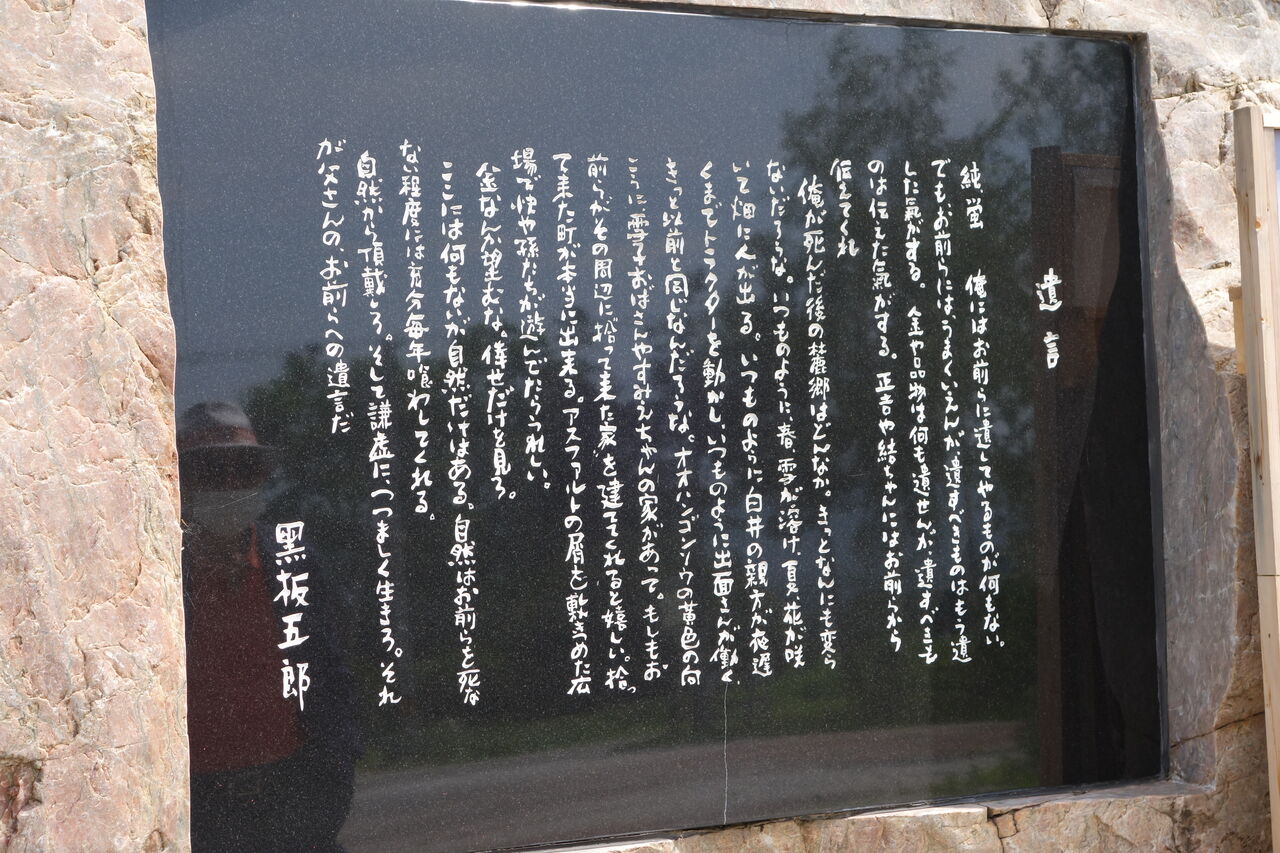 遺言
純蛍　俺にはお前らに遺してやるものが何もない。
でもお前らには、うまくいえんが、遺すべきものはもう遺
した氣がする。金や品物は何も遺せんが、遺すべきも
のは伝えた氣がする。正吉や結ちゃんにはお前らから
伝えてくれ
俺が死んだ後の麓郷はどんなか。きっとなんにも変ら
ないだろうな。いつものように、春、雪が溶け、夏、花が咲
いて畑に人が出る。いつものように白井の親方が夜遅
くまでトラクターを動かし、いつものように出面さんが働く、
きっと以前と同じなんだろうな。オオハンゴンソウの黄色の向
こうに雪子おばさんやすみえちゃんの家があって。もしもお
前らがその周辺に拾って来た家を建ててくれると嬉しい。拾っ
て来た町が本当に出来る。アスファルトの屑を敷きつめた広
場で快や孫たちが遊んでたらうれしい。
金なんか望むな。倖せだけを見ろ。
ここには何もないが自然だけはある。自然はお前らを死な
ない程度には充分毎年喰わしてくれる。
自然から頂戴しろ。そして謙虚に、つつましく生きろ。それ
が父さんの、お前らへの遺言だ
黒板五郎